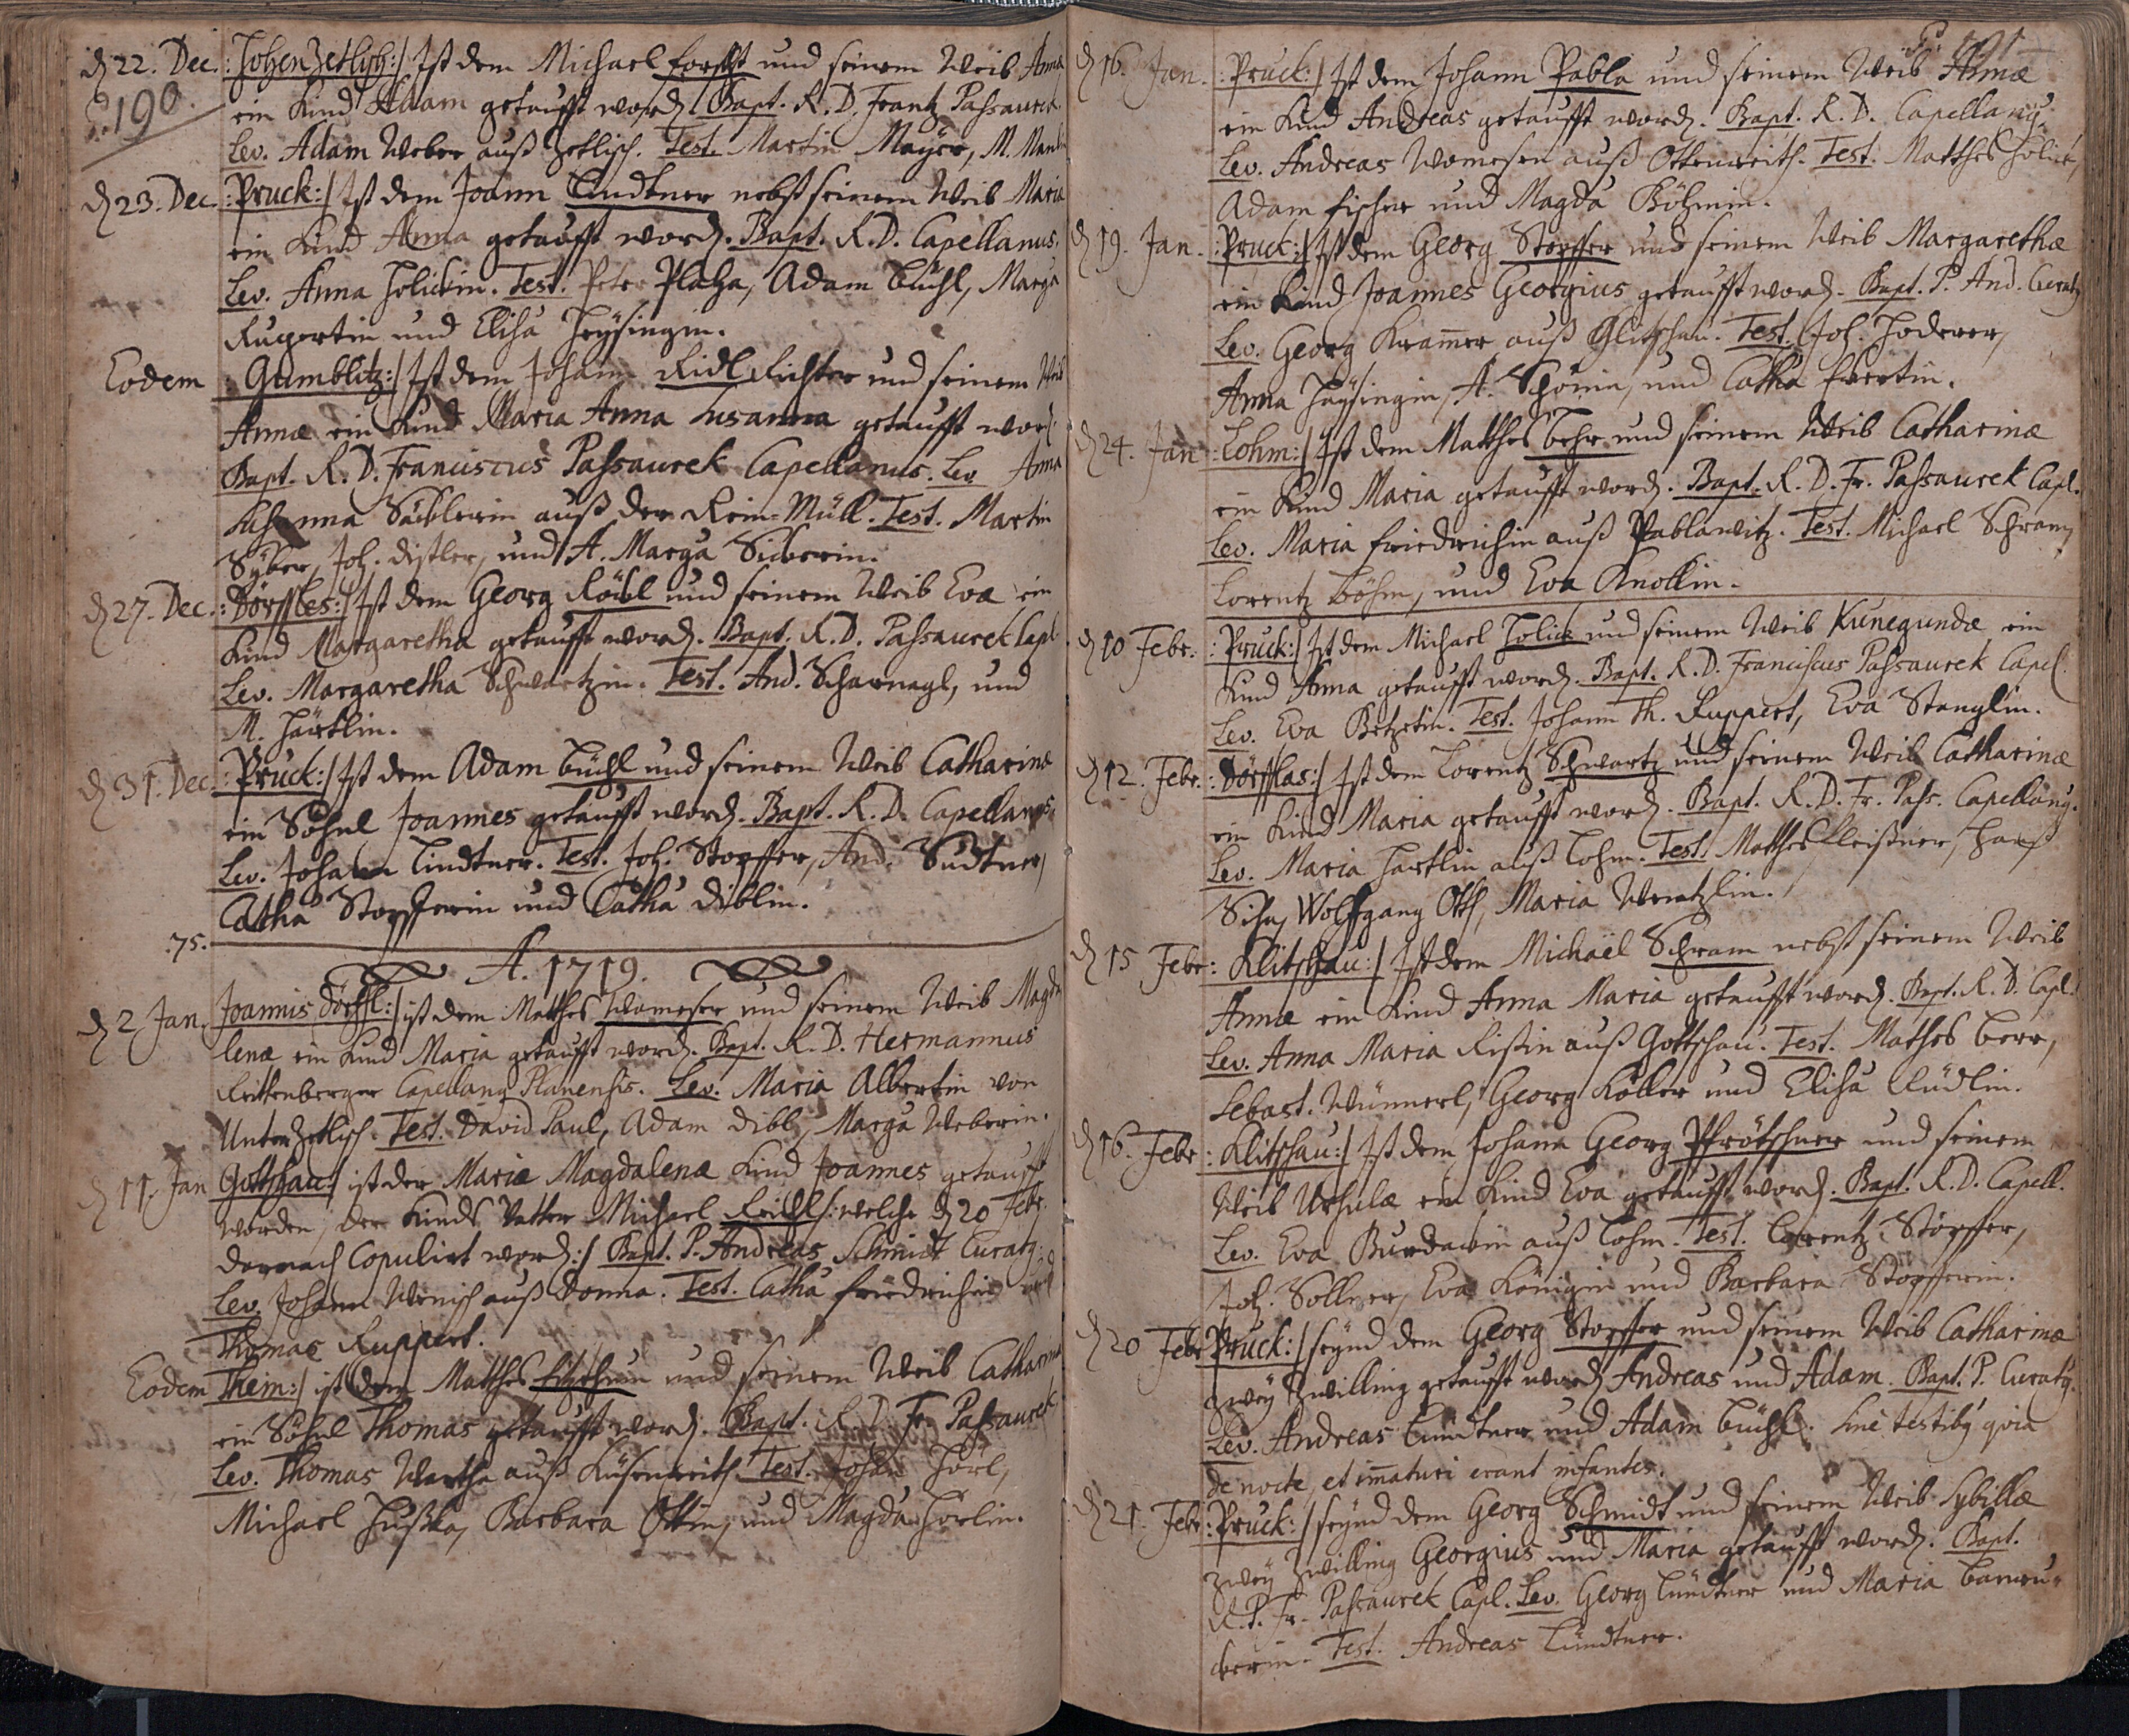 d 22. Dec. :HohenZetlisch:/ Ist dem Michael Forster und seinem Weib Anna
P. 190.
ein Kind Adam getaufft word. Bapt. R. D. Frantz Passaurek.
Lev. Adam Weber auß Zetlisch. Test. Martin Mayer, M.
d 23. Dec. :Pruck:/ Ist dem Joann Lindtner nebst seinem Weib Maria
ein Kind Anna getaufft word. Bapt. R. D. Capellanus.
Lev. Anna Holickin. Test. Peter Plaha, Adam Büchl, Marga
Rupertin und Elisa Heysingin.
Eodem :Gumblitz:/ Ist dem Johann Ridl Richter und seinem Weib
Annæ ein Kind Maria Anna Susanna getaufft word.
Bapt. R. D. Franciscus Passaurek Capellanus. Lev. Anna
Susanna auß der Rein-Müll. Test. Martin
Joh. Distler, und A. Marga
d 27. Dec. :Dörffles:/ Ist dem Georg und seinem Weib Eva ein
Kind Margaretha getaufft word. Bapt. R. D. Passaurek Capl.
Lev. Margaretha Schwartzin. Test. And. Scharnagl, und
M. Härtlin.
d 31. Dec. :Pruck:/ Ist dem Adam Büchl und seinem Weib Catharinæ
ein Söhnl Joannes getaufft word. Bapt. R. D. Capellanus,
Lev. Johann Lindtner. Test. Joh. Stopffer, And. Sudtner,
Catha Stopfferin und Catha Diblin.
.75.
A. 1719.
d 2 Jan. Joannis Dörffl:/ ist dem Matthes Womeser und seinem Weib Magda
lenæ ein Kind Maria getaufft word. Bapt. R. D. Hermannus
Reittenberger Capellang Planensis. Lev. Maria Albertin von
UnterZetlisch Test. David Paul, Adam Dibl, Marga Weberin.
d 11. Jan Gottschau:/ ist der Mariæ Magdalenæ Kind Joannes getaufft
worden, der Kinds Vatter Michael Reichl /:welche d 20 Febr.
darnach Copulirt word:/ Bapt. P. Andreas Schmidt Curatg.
Lev. Johann Wenisch auß Donna. Test. Catha Friedrichin und
Thomas Ruppert.
Eodem Thein:/ ist dem Matthes Fitzthum und seinem Weib Catharinæ
ein Söhnl Thomas getaufft word. Bapt. R. D. Fr. Passaurek
Lev. Thomas Wartha auß Test. Johan Hörl,
Michael Barbara Ottin, und Magda Hörlin.
P. 191
d 16. Jan. :Pruck:/ Ist dem Johann Pabla und seinem Weib Annæ
ein Kind Andreas getaufft word. Bapt. R. D. Capellang.
Lev. Andreas Womesen auß Ottenreith. Test. Matthes Holick,
Adam Fischer und Magda Böhmin.
d 19. Jan. :Pruck:/ Ist dem Georg Stopffer und seinem Weib Margarethæ
ein Kind Joannes Georgius getaufft word. Bapt. P. And. Curatg
Lev. Georg Kramer auß Glitschau. Test. Joh. Hoderer,
Anna Heysingin, A. Schönin, und Catha Ebertin.
d 24. Jan :Lohm:/ Ist dem Matthes Behr und seinem Weib Catharinæ
ein Kind Maria getaufft word. Bapt. R. D. Fr. Passaurek Capl.
Lev. Maria Friedrichin auß Pablawitz. Test. Michael Schram,
Lorentz Böhm, und Eva Knollin.
d 10 Febr. :Pruck:/ Ist dem Michael Holick und seinem Weib Kunegundæ ein
Kind Anna getaufft word. Bapt. R. D. Franciscus Passaurek Capel.
Lev. Eva Betzetin. Test. Johann Th. Ruppert, Eva Stanglin.
d 12. Febr. :Dörfflas:/ Ist dem Lorentz Schwartz und seinem Weib Catharinæ
ein Kind Maria getaufft word. Bapt. R. D. Fr. Pass. Capellang.
Lev. Maria Hartlin auß Lohm. Test. Matthes Fleißner, Hanß
Wolffgang Ott, Maria
d 15 Febr :Klitschau:/ Ist dem Michaël Schram nebst seinem Weib
Annæ ein Kind Anna Maria getaufft word. Bapt. R. D. Capl.
Lev. Anna Maria Rißin auß Gottschau. Test. Mathes Beer,
Sebast. Wünnerl, Georg Köller und Elisa Rüdlin.
d 16. Febr :Klitschau:/ Ist dem Johann Georg Pfrötschner und seinem
Weib Ursulæ ein Kind Eva getaufft word. Bapt. R. D. Capell.
Lev. Eva Burdawin auß Lohm. Test. Lorentz Stöpffer,
Joh. Sollner, Eva Königin und Barbara Stopfferin.
d 20 Febr Pruck:/ seynd dem Georg Stopffer und seinem Weib Catharinæ
zwey Zwilling getaufft word Andreas und Adam. Bapt. P. Curatg.
Lev. Andreas Lindtner und Adam Büchl. Sine testibg quia
de nocte, et immaturi erant infantes.
d 21. Febr :Pruck:/ seynd dem Georg Schmidt und seinem Weib Sybillæ
zwey Zwilling Georgius und Maria getaufft word. Bapt.
R. P. Fr. Passaurek Capl. Lev. Georg Lindtner und Maria
Test. Andreas Lindtner.